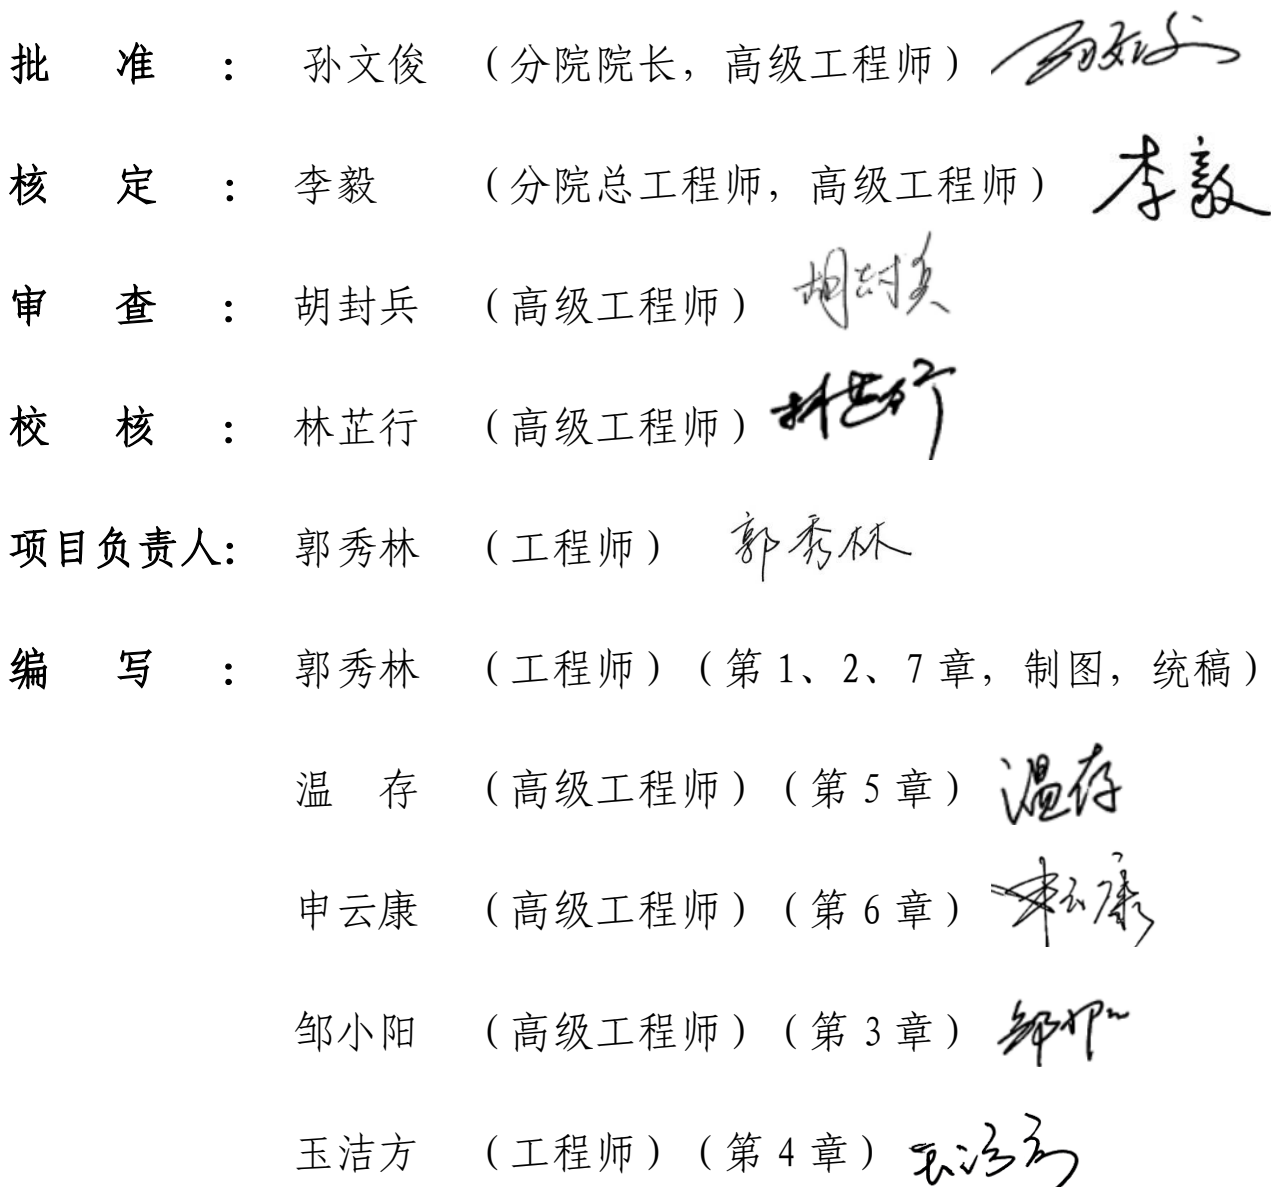 批 准 : 孙文俊 (分院院长，高级工程师) 孙文俊
核 定 : 李毅 (分院总工程师，高级工程师) 李毅
审 查 : 胡封兵 (高级工程师) 胡封兵
校 核 : 林芷行 (高级工程师) 林芷行
项目负责人: 郭秀林 (工程师) 郭秀林
编 写 : 郭秀林 (工程师)(第 1、2、7 章，制图，统稿)
温 存 (高级工程师)(第 5 章) 温存
申云康 (高级工程师)(第 6 章) 申云康
邹小阳 (高级工程师)(第 3 章) 邹小阳
玉洁方 (工程师)(第 4 章) 玉洁方